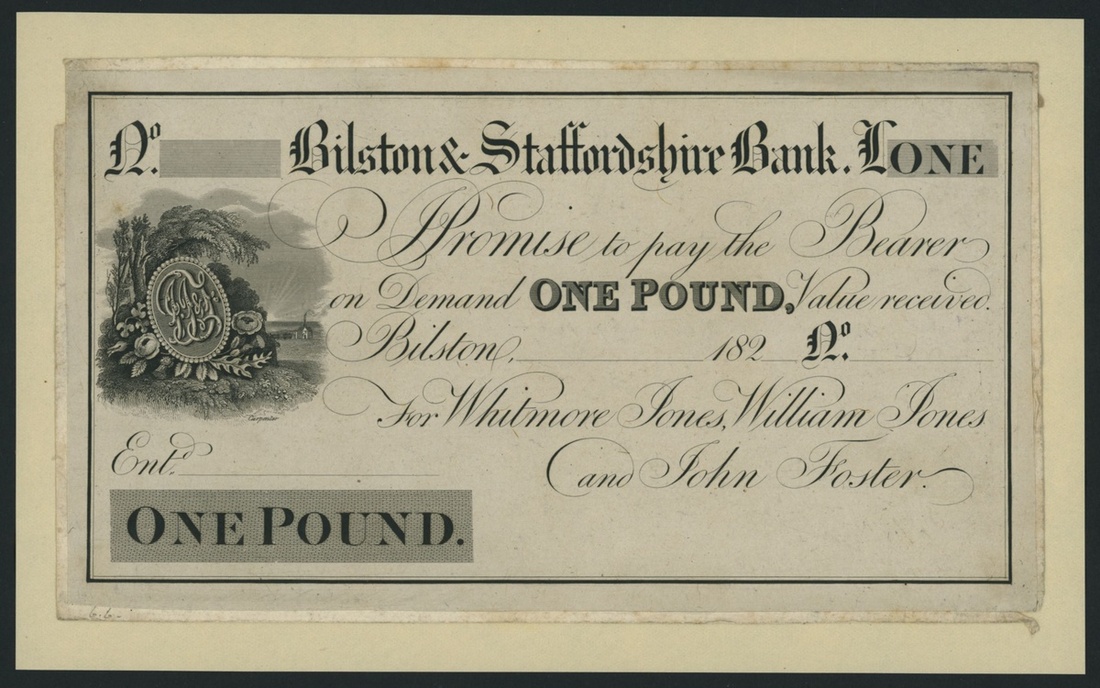 No. Bilston & Staffordshire Bank. £ONE
I Promise to pay the Bearer
on Demand ONE POUND, Value received.
Bilston, 182 No.
For Whitmore Jones, William Jones
and John Foster.
Carpenter
Entd.
ONE POUND.
6.6.-